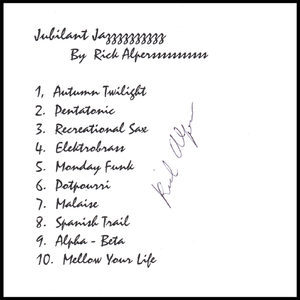 Jubilant Jazzzzzzzzzz
By Rick Alperssssssssss
1, Autumn Twilight
2. Pentatonic
3. Recreational Sax
4. Elektrobrass
5. Monday Funk
6. Potpourri
7. Malaise
8. Spanish Trail
9. Alpha - Beta
10. Mellow Your Life
Rick Alper